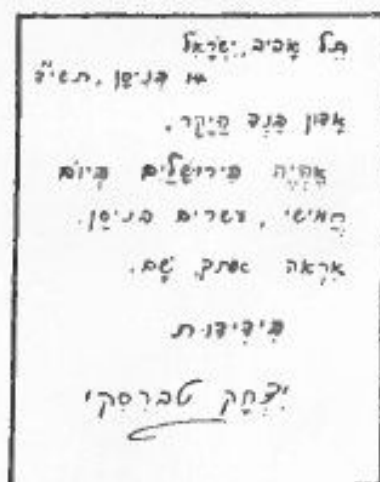 תֵּל אָבִיב, יִשְׂרָאֵל
בְּנִיסָן,
אָדוֹן הַיָּקָר,
אֶהְיֶה בִּירוּשָׁלַיִם בְּיוֹם
חֲמִישִׁי, עֶשְׂרִים בְּנִיסָן.
אֶרְאֶה אוֹתְךָ שָׁם.
בִּידִידוּת
יִצְחָק טְבֶרְסְקִי